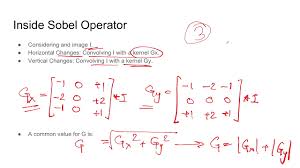 Inside Sobel Operator
3
● Considering and image I
● Horizontal Changes: Convolving I with a kernel Gx.
● Vertical Changes: Convolving I with a kernel Gy.
Gx = [-1 0 +1
-2 0 +2
-1 0 +1] * I
Gy = [-1 -2 -1
0 0 0
+1 +2 +1] * I
● A common value for G is:
G = √Gx² + Gy² → G = |Gx| + |Gy|